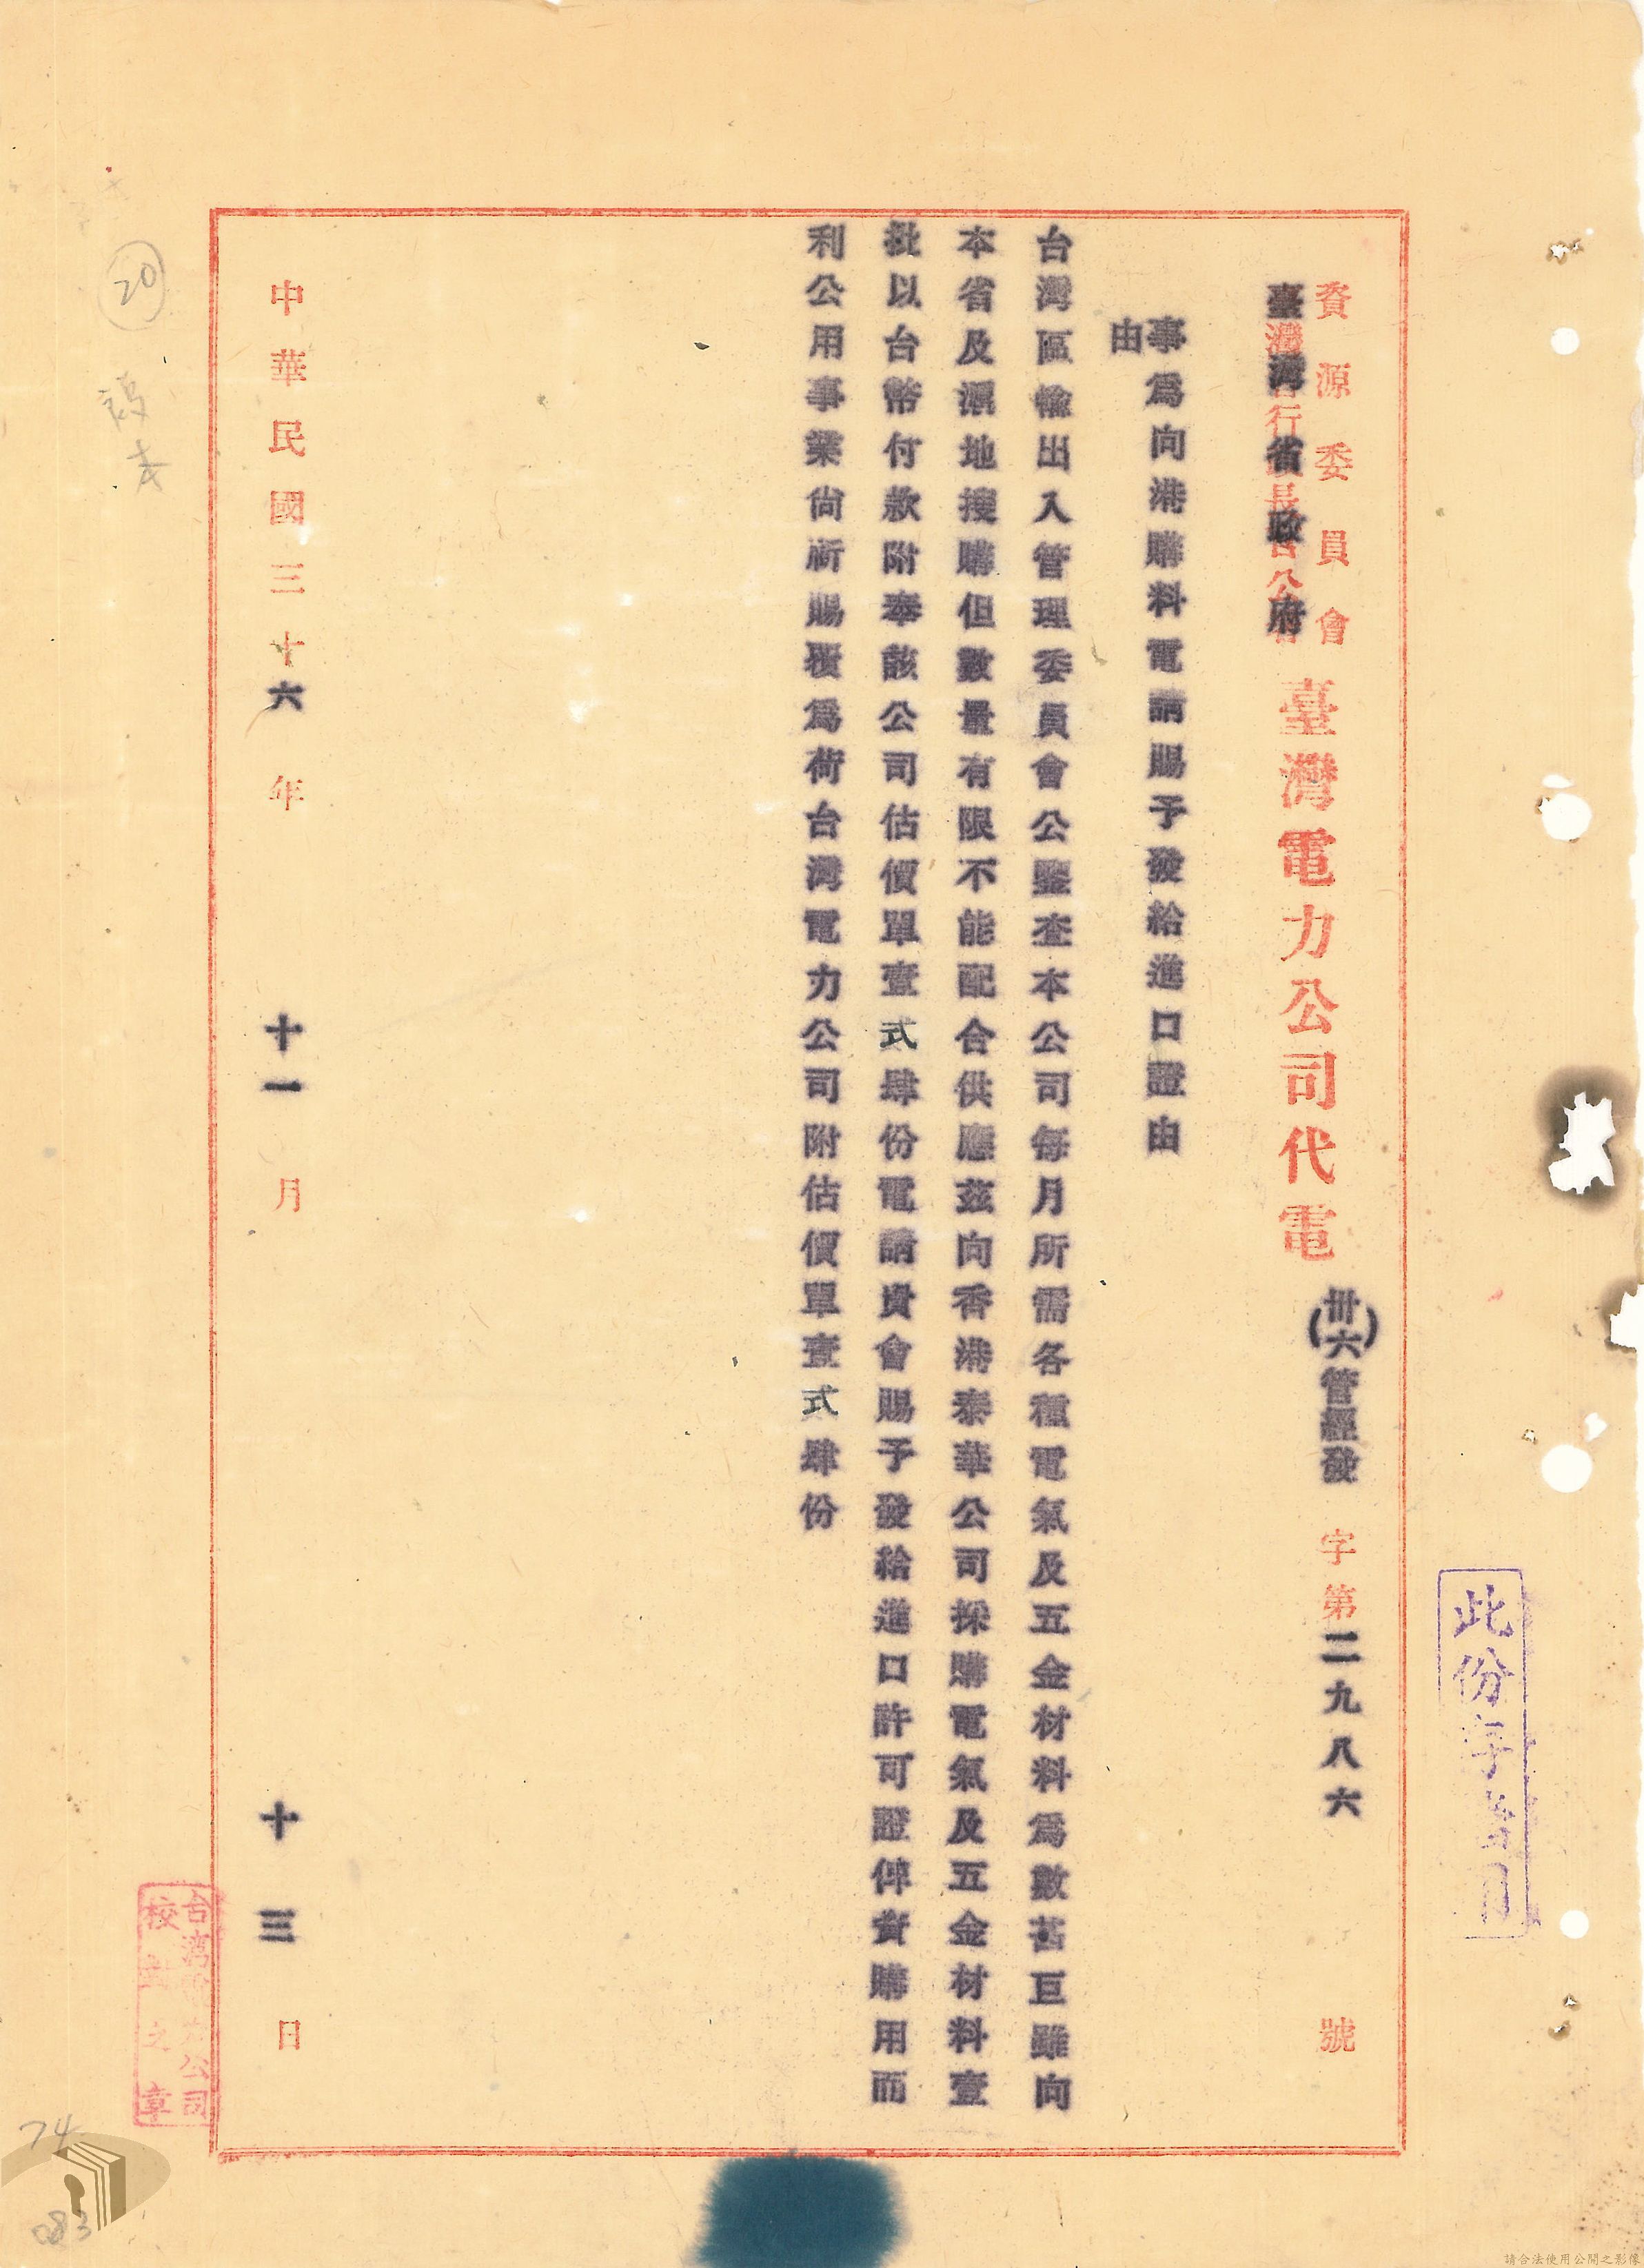 資源委員會
臺灣省政府
臺灣電力公司代電
(卅六)管經發 字第二九八六 號
事為向港購料電請賜予發給進口證由
由
台灣區輸出入管理委員會公鑒查本公司每月所需各種電氣及五金材料為數甚巨雖向
本省及滬地搜購但數量有限不能配合供應茲向香港泰華公司採購電氣及五金材料壹
批以台幣付款附奉該公司估價單壹式肆份電請貴會賜予發給進口許可證俾資購用而
利公用事業尚祈賜覆為荷台灣電力公司附估價單壹式肆份
中華民國三十六年 十一月 十三日
此份存
台灣電力公司
校對之章
20
74
083
請合法使用公開之影像